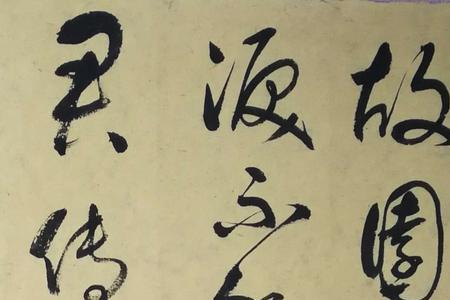 故園
淚不
君傳